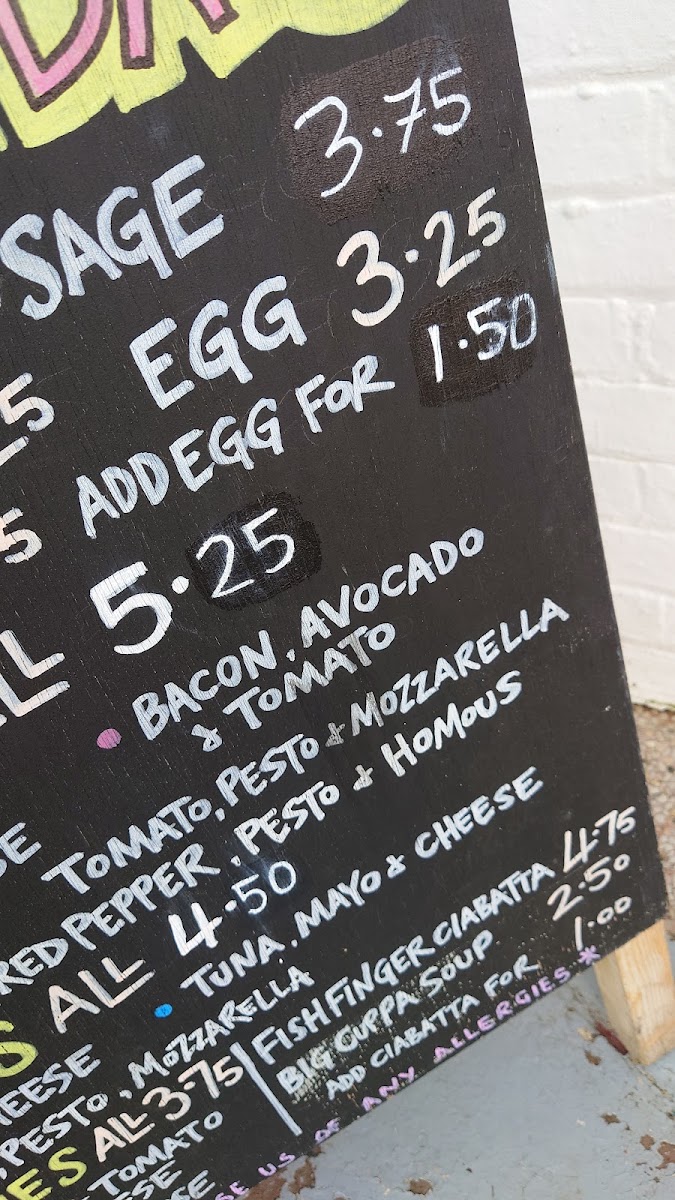 3.75
SAGE
EGG 3.25
ADD EGG FOR 1.50
ALL 5.25
• BACON, AVOCADO
& TOMATO
TOMATO, PESTO & MOZZARELLA
RED PEPPER, PESTO & HOMOUS
ALL 4.50
• TUNA, MAYO & CHEESE
PESTO, MOZZARELLA
ALL 3.75
TOMATO
FISH FINGER CIABATTA 4.75
BIG CUPPA SOUP 2.50
ADD CIABATTA FOR 1.00
US OF ANY ALLERGIES *